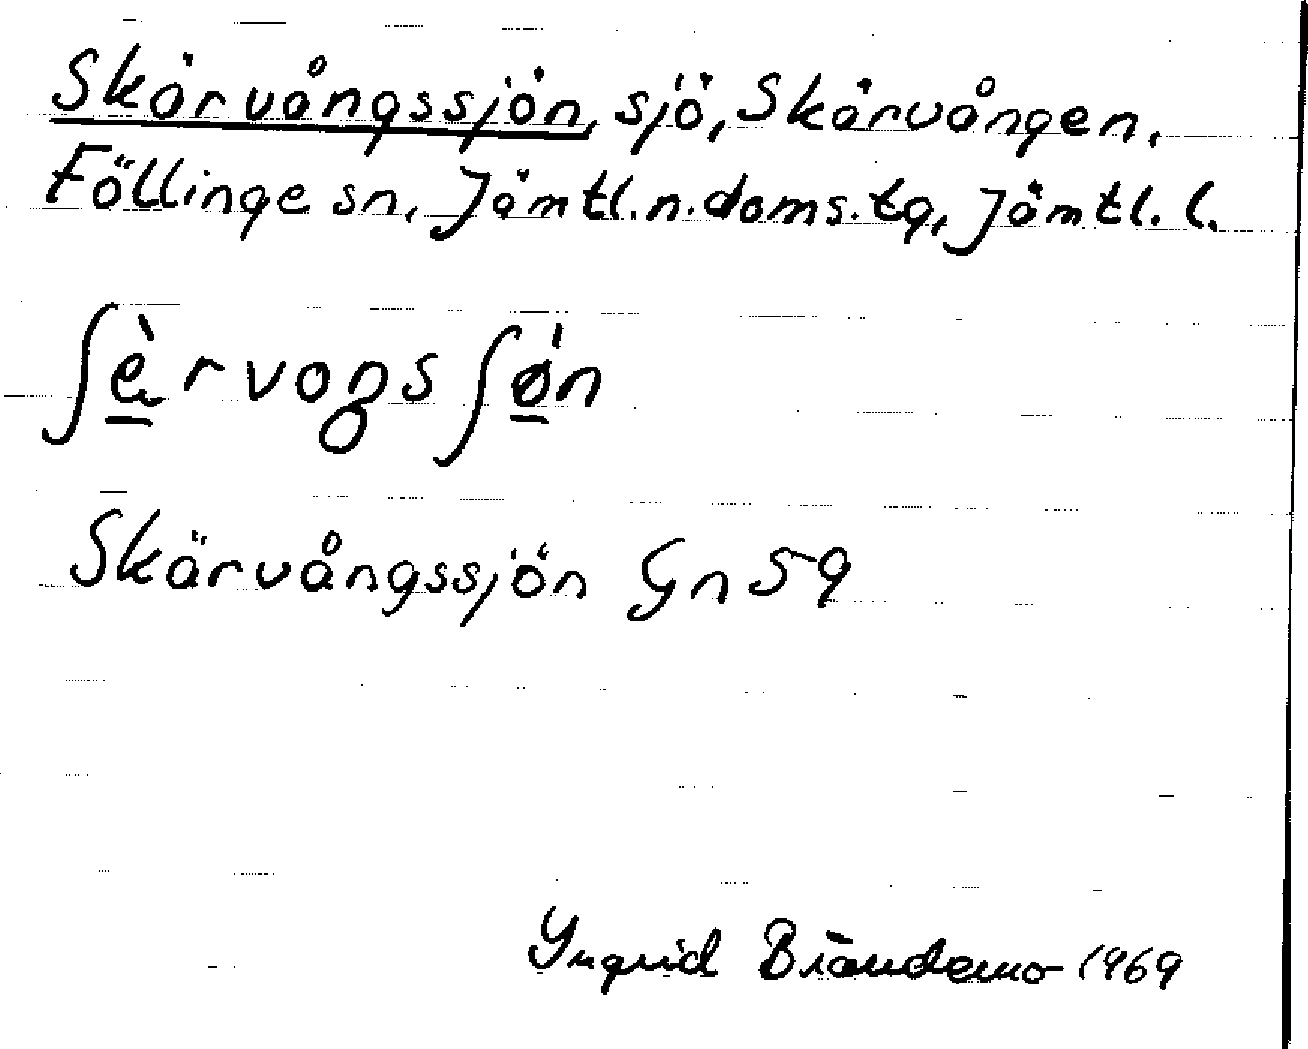 Skärvångssjön, sjö, Skärvången,
Föllinge sn, Jämtl.n.doms.tg, Jämtl. l.
ʃæ̀rvoŋsʃǿn
Skärvångssjön Gn 59
Yngrid Brändemo 1969